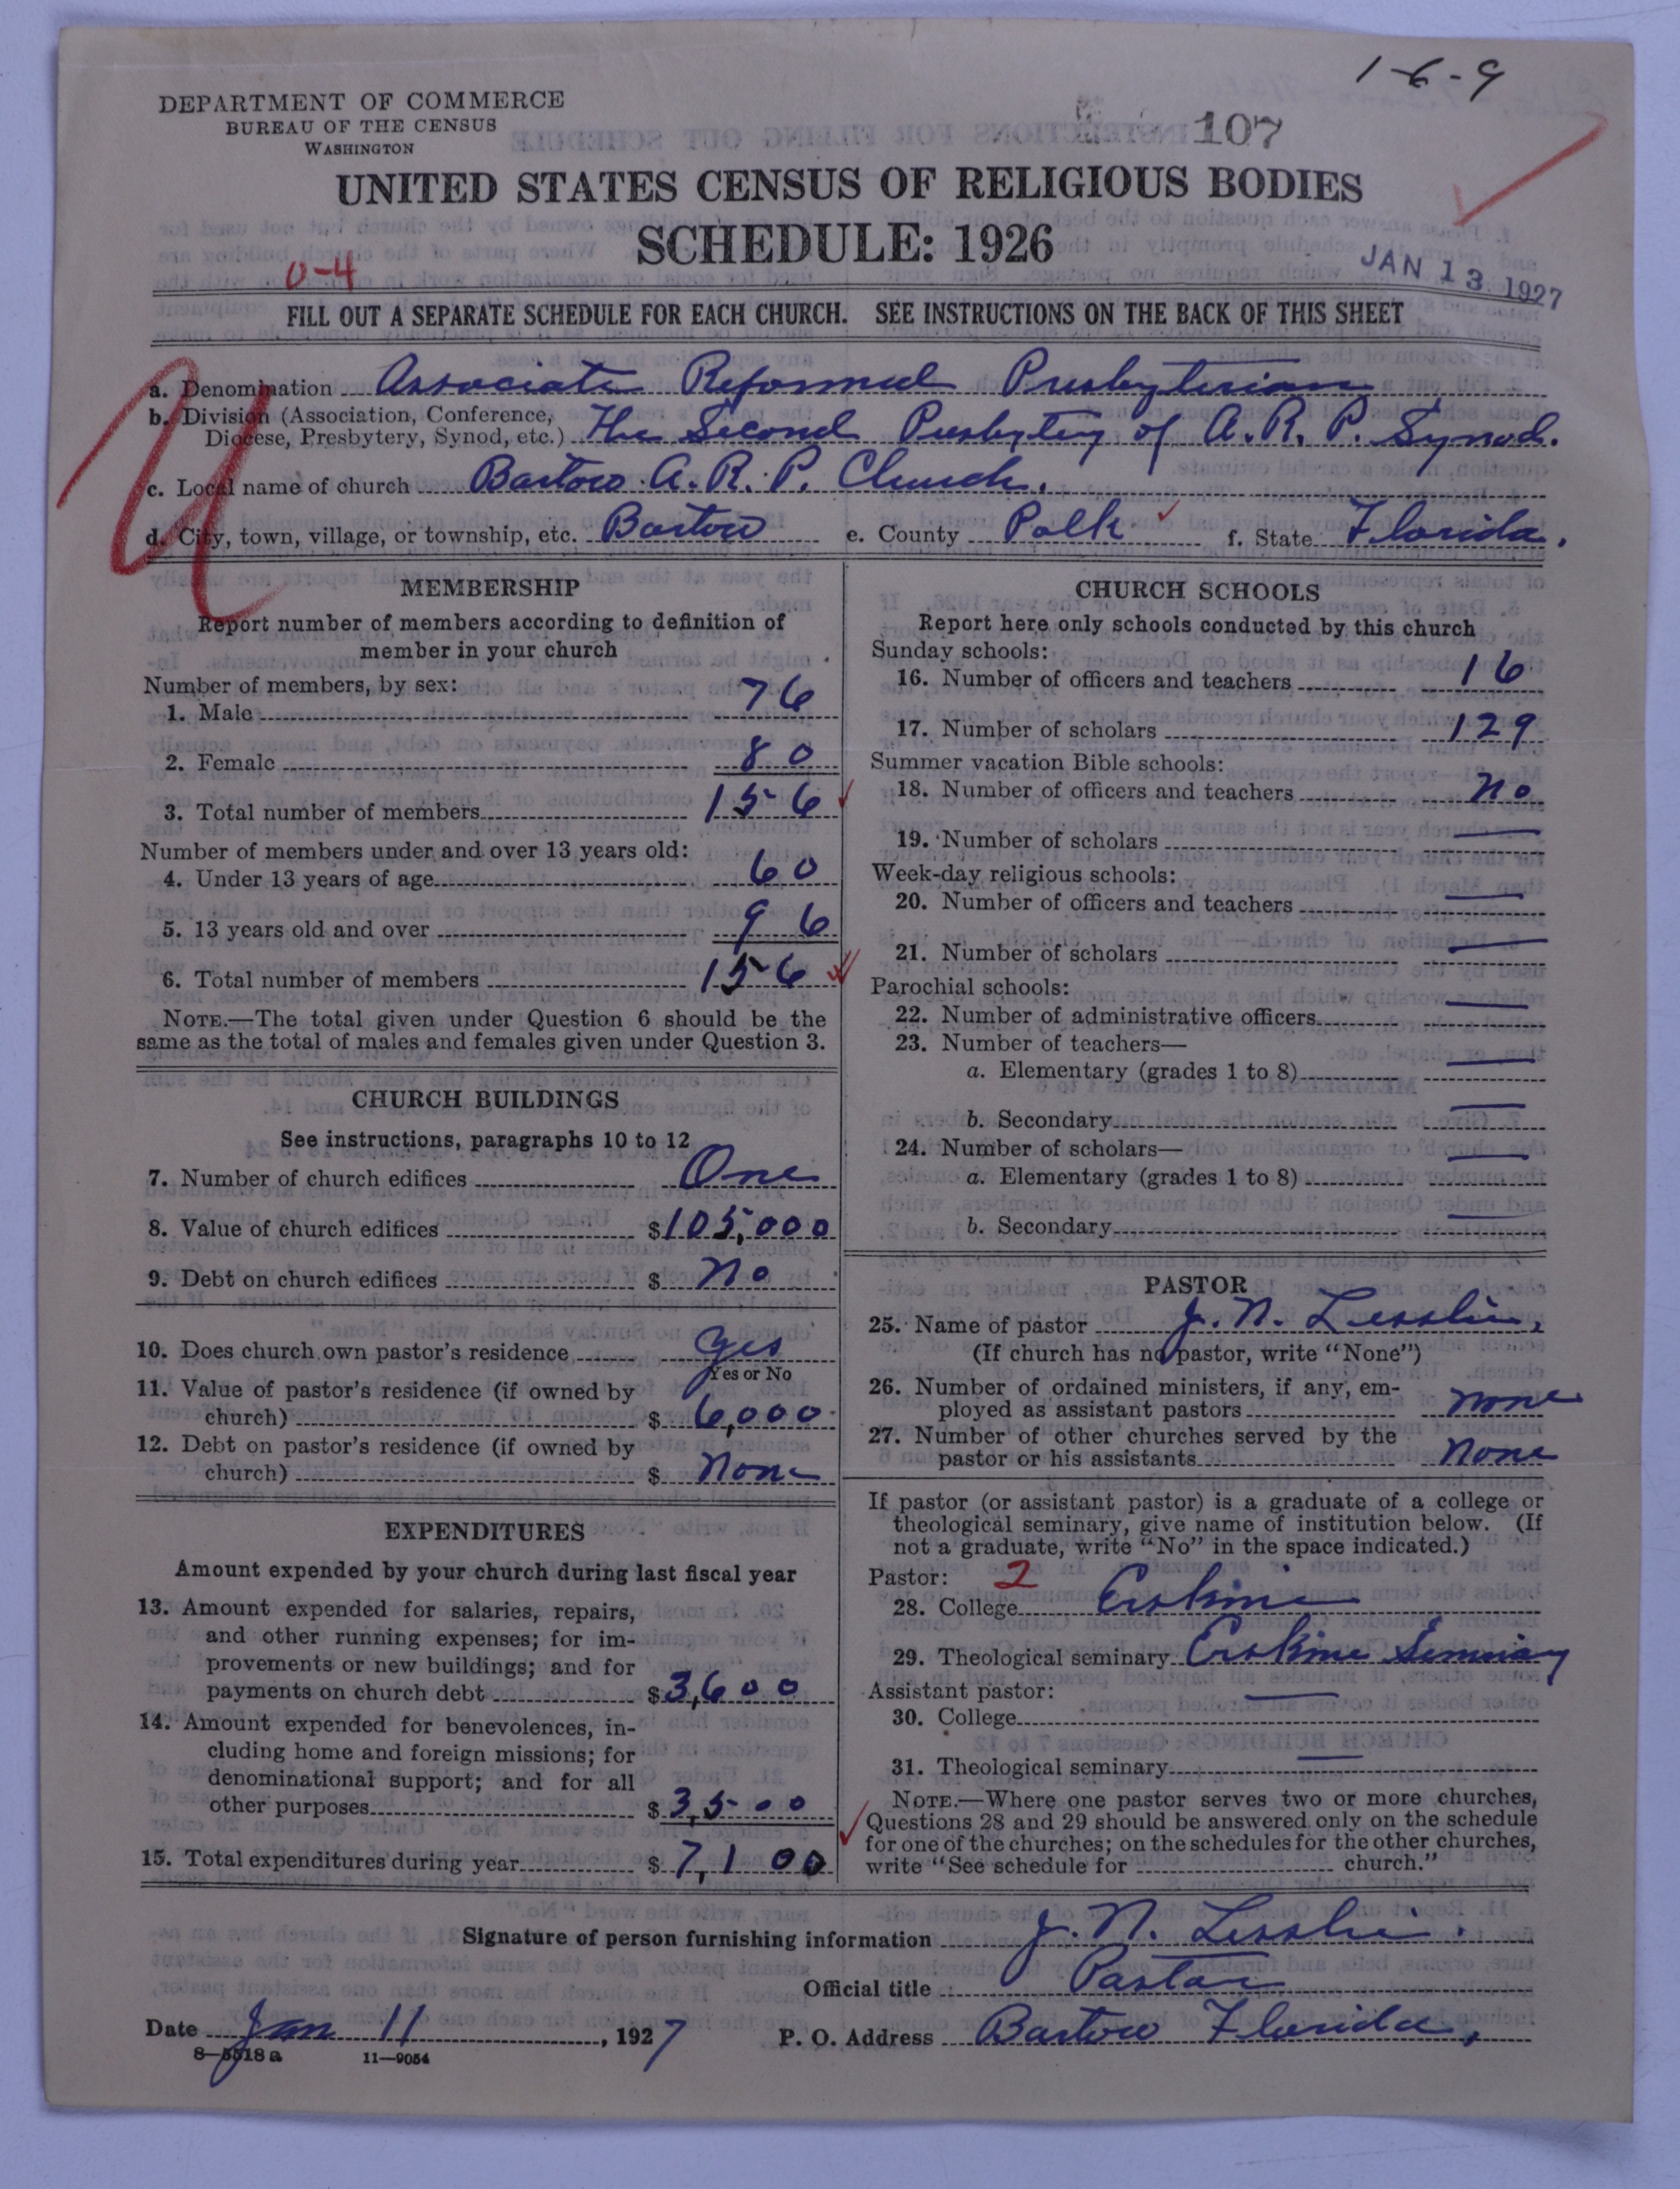 1-6-9
DEPARTMENT OF COMMERCE
BUREAU OF THE CENSUS
WASHINGTON
107
UNITED STATES CENSUS OF RELIGIOUS BODIES
SCHEDULE: 1926
0-4
JAN 13 1927
FILL OUT A SEPARATE SCHEDULE FOR EACH CHURCH. SEE INSTRUCTIONS ON THE BACK OF THIS SHEET
a. Denomination Associate Reformed Presbyterian
b. Division (Association, Conference, Diocese, Presbytery, Synod, etc.) The Second Presbytery of A.R.P. Synod.
c. Local name of church Bartow A.R.P. Church.
d. City, town, village, or township, etc. Bartow e. County Polk f. State Florida.
U
MEMBERSHIP
Report number of members according to definition of
member in your church
Number of members, by sex:
1. Male 76
2. Female 80
3. Total number of members 156
Number of members under and over 13 years old:
4. Under 13 years of age 60
5. 13 years old and over 96
6. Total number of members 156
NOTE.—The total given under Question 6 should be the
same as the total of males and females given under Question 3.
CHURCH BUILDINGS
See instructions, paragraphs 10 to 12
7. Number of church edifices One
8. Value of church edifices $105,000
9. Debt on church edifices $ No
10. Does church own pastor's residence Yes
Yes or No
11. Value of pastor's residence (if owned by
church) $ 6,000
12. Debt on pastor's residence (if owned by
church) $ None
EXPENDITURES
Amount expended by your church during last fiscal year
13. Amount expended for salaries, repairs,
and other running expenses; for im-
provements or new buildings; and for
payments on church debt $3,600
14. Amount expended for benevolences, in-
cluding home and foreign missions; for
denominational support; and for all
other purposes $3,500
15. Total expenditures during year $7,100
CHURCH SCHOOLS
Report here only schools conducted by this church
Sunday schools:
16. Number of officers and teachers 16
17. Number of scholars 129
Summer vacation Bible schools:
18. Number of officers and teachers No
19. Number of scholars —
Week-day religious schools:
20. Number of officers and teachers —
21. Number of scholars —
Parochial schools:
22. Number of administrative officers —
23. Number of teachers—
a. Elementary (grades 1 to 8) —
b. Secondary —
24. Number of scholars—
a. Elementary (grades 1 to 8) —
b. Secondary —
PASTOR
25. Name of pastor J. N. Lesslie,
(If church has no pastor, write "None")
26. Number of ordained ministers, if any, em-
ployed as assistant pastors none
27. Number of other churches served by the
pastor or his assistants None
If pastor (or assistant pastor) is a graduate of a college or
theological seminary, give name of institution below. (If
not a graduate, write "No" in the space indicated.)
Pastor: 2
28. College Erskine
29. Theological seminary Erskine Seminary
Assistant pastor:
30. College —
31. Theological seminary —
NOTE.—Where one pastor serves two or more churches,
Questions 28 and 29 should be answered only on the schedule
for one of the churches; on the schedules for the other churches,
write "See schedule for church."
Signature of person furnishing information J. N. Lesslie.
Official title Pastor
Date Jan 11, 1927 P. O. Address Bartow Florida,
8—5518a 11—9054